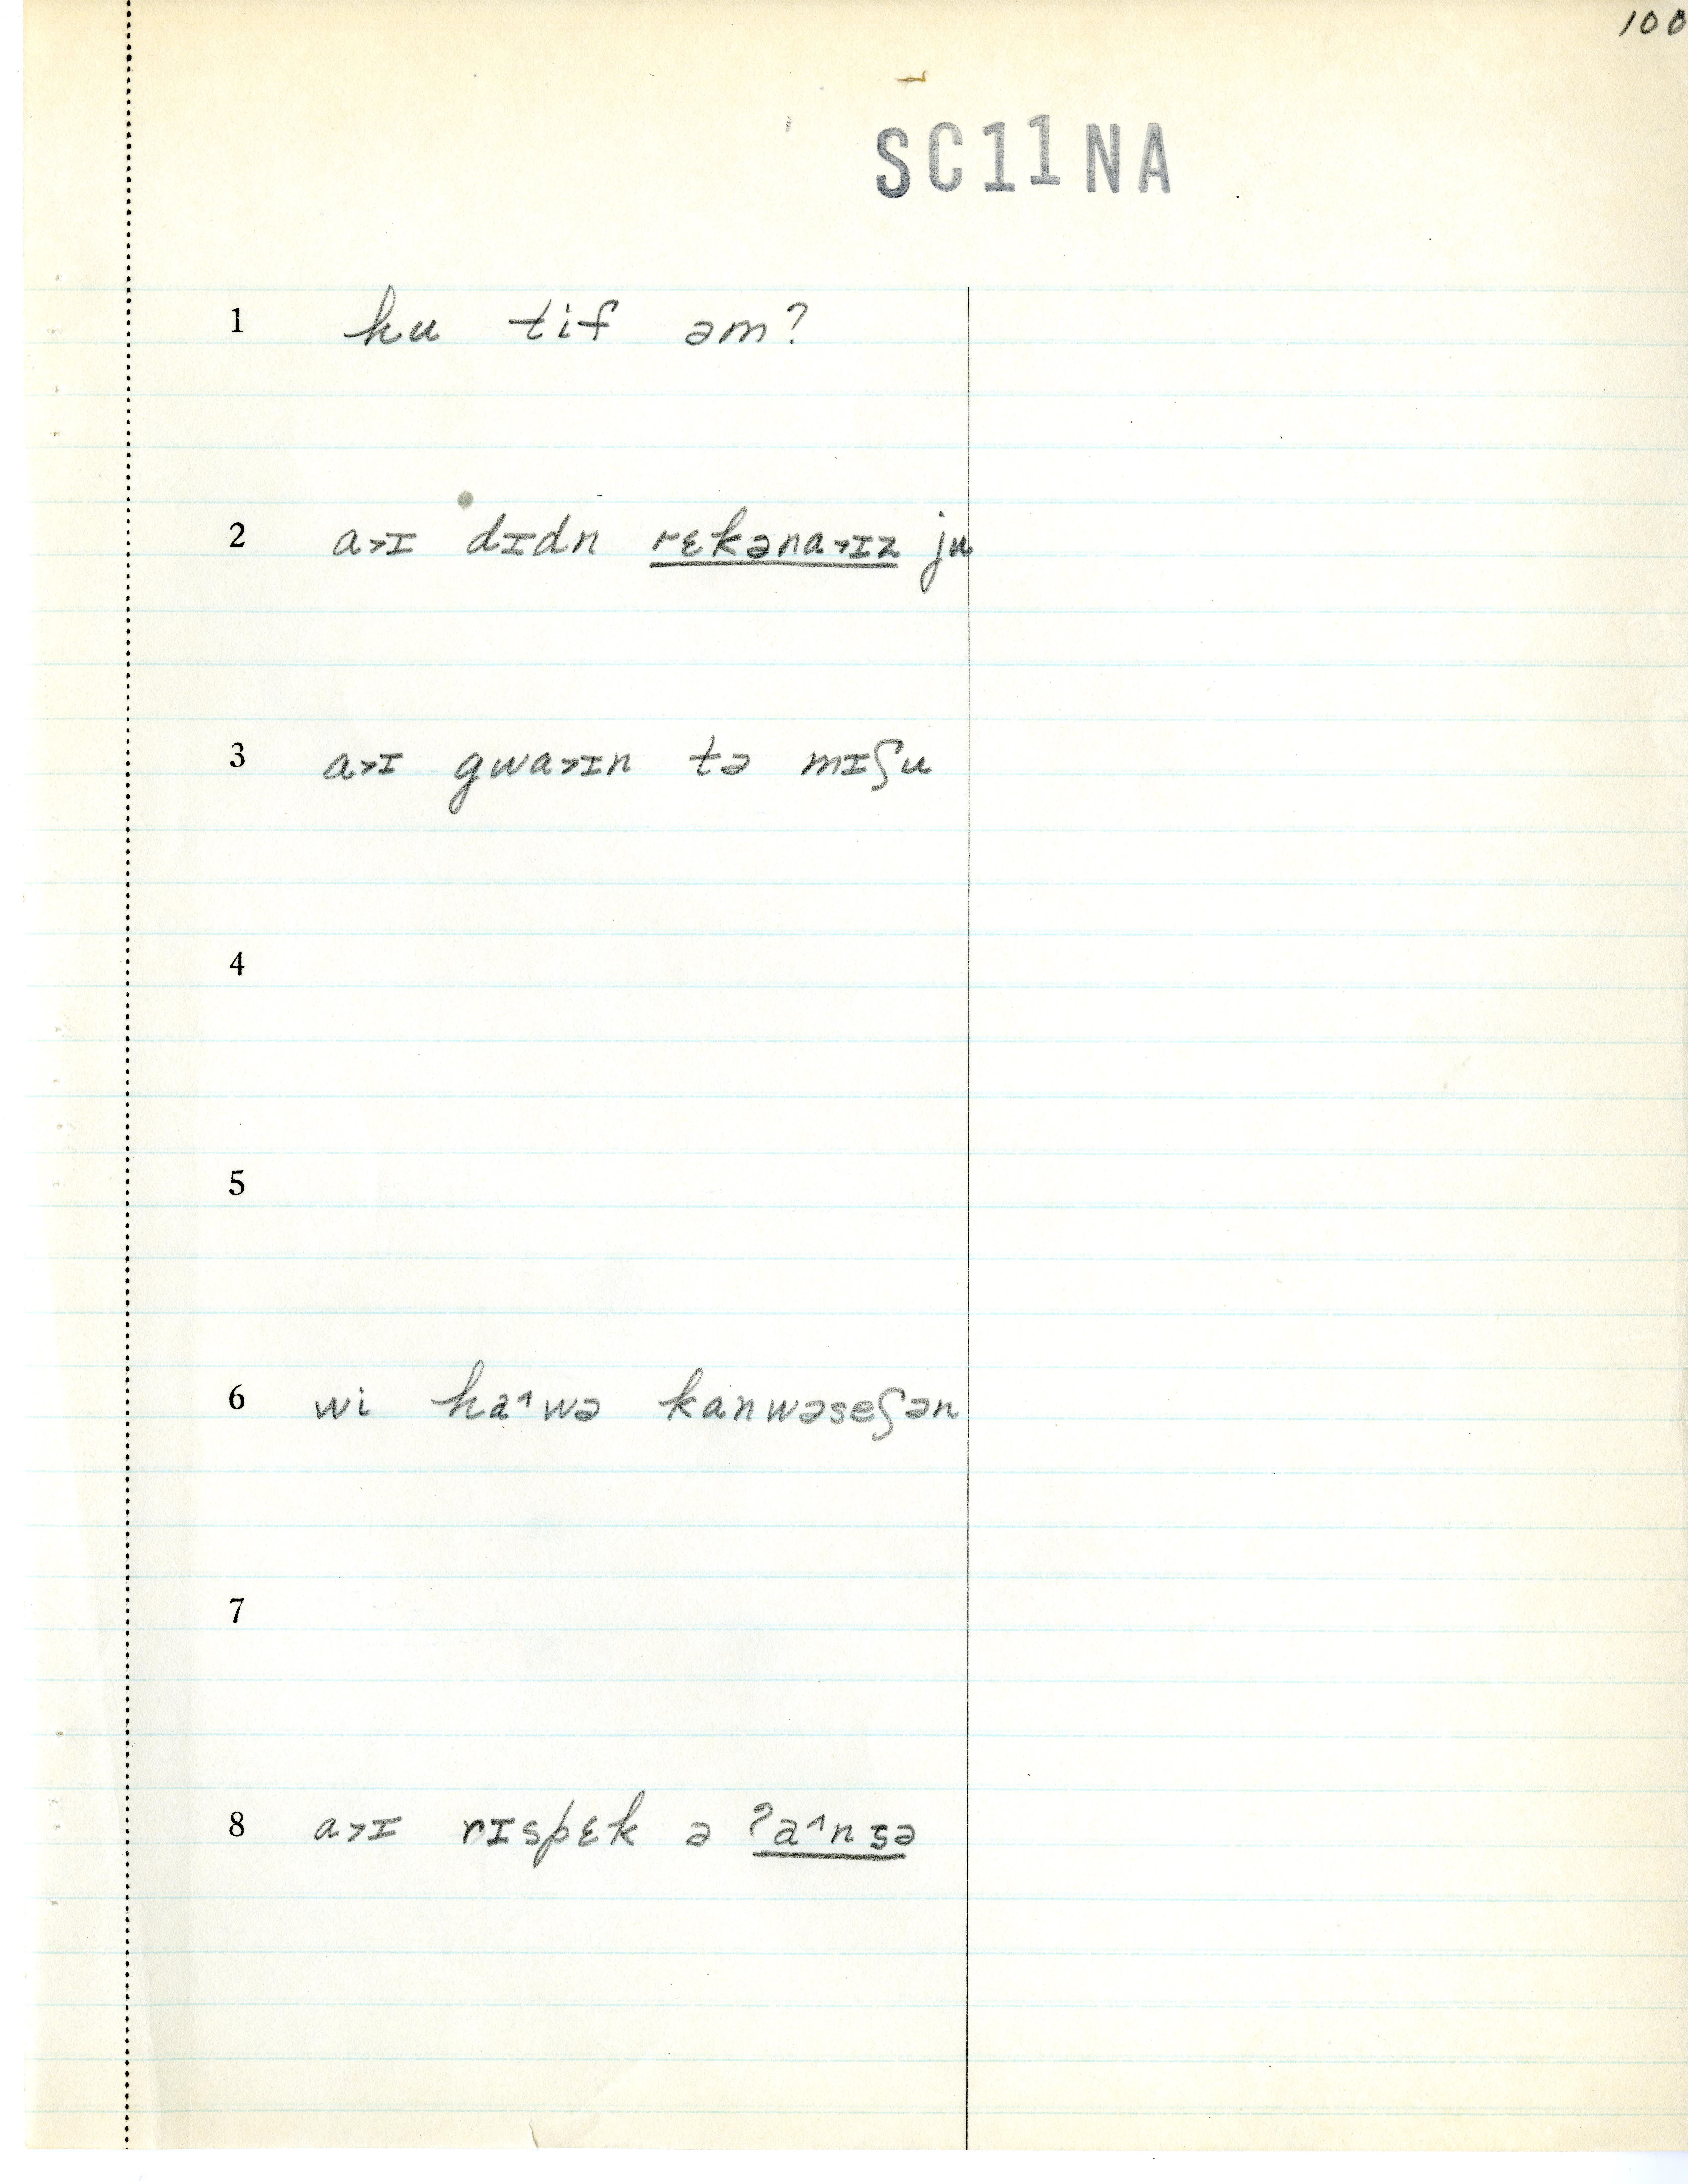 100
SC11NA
1 hu tif əm?
2 a˃ɪ dɪdn rɛkəna˃ɪz ju
3 a˃ɪ gwa˃ɪn tə mɪʃu
4
5
6 wi ha˄wə kanwəseʃən
7
8 a˃ɪ rɪspɛk ə ʔa˄nsə